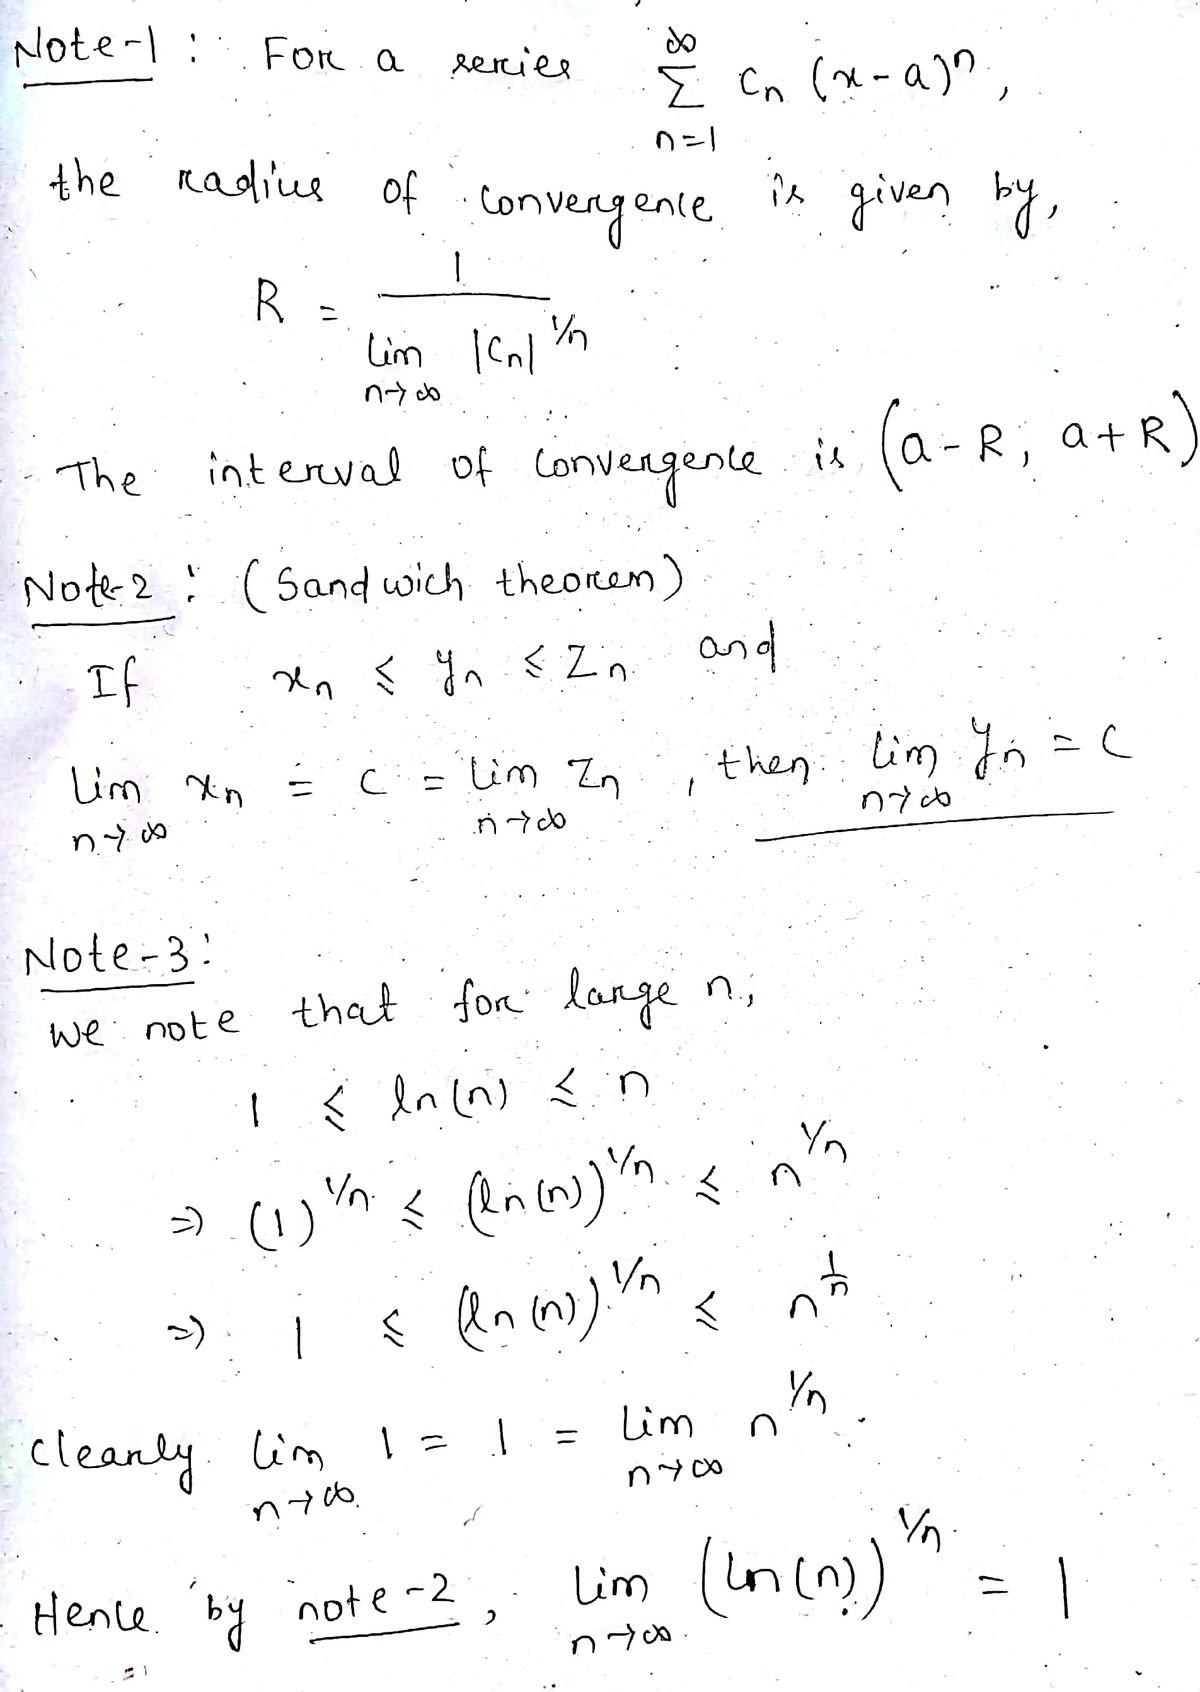 Note-1 : For a series ∞∑n=1 Cn (x-a)ⁿ,
the radius of convergence is given by,
R = 1 / lim n→∞ |Cn|^1/n
The interval of convergence is (a-R, a+R)
Note-2 : (Sandwich theorem)
If xn ≤ yn ≤ Zn and
lim n→∞ xn = c = lim n→∞ Zn , then lim n→∞ yn = c
Note-3:
We note that for large n,
1 ≤ ln(n) ≤ n
⇒ (1)^1/n ≤ (ln(n))^1/n ≤ n^1/n
⇒ 1 ≤ (ln(n))^1/n ≤ n^1/n
Clearly lim n→∞ 1 = 1 = lim n→∞ n^1/n.
Hence by note-2, lim n→∞ (ln(n))^1/n = 1